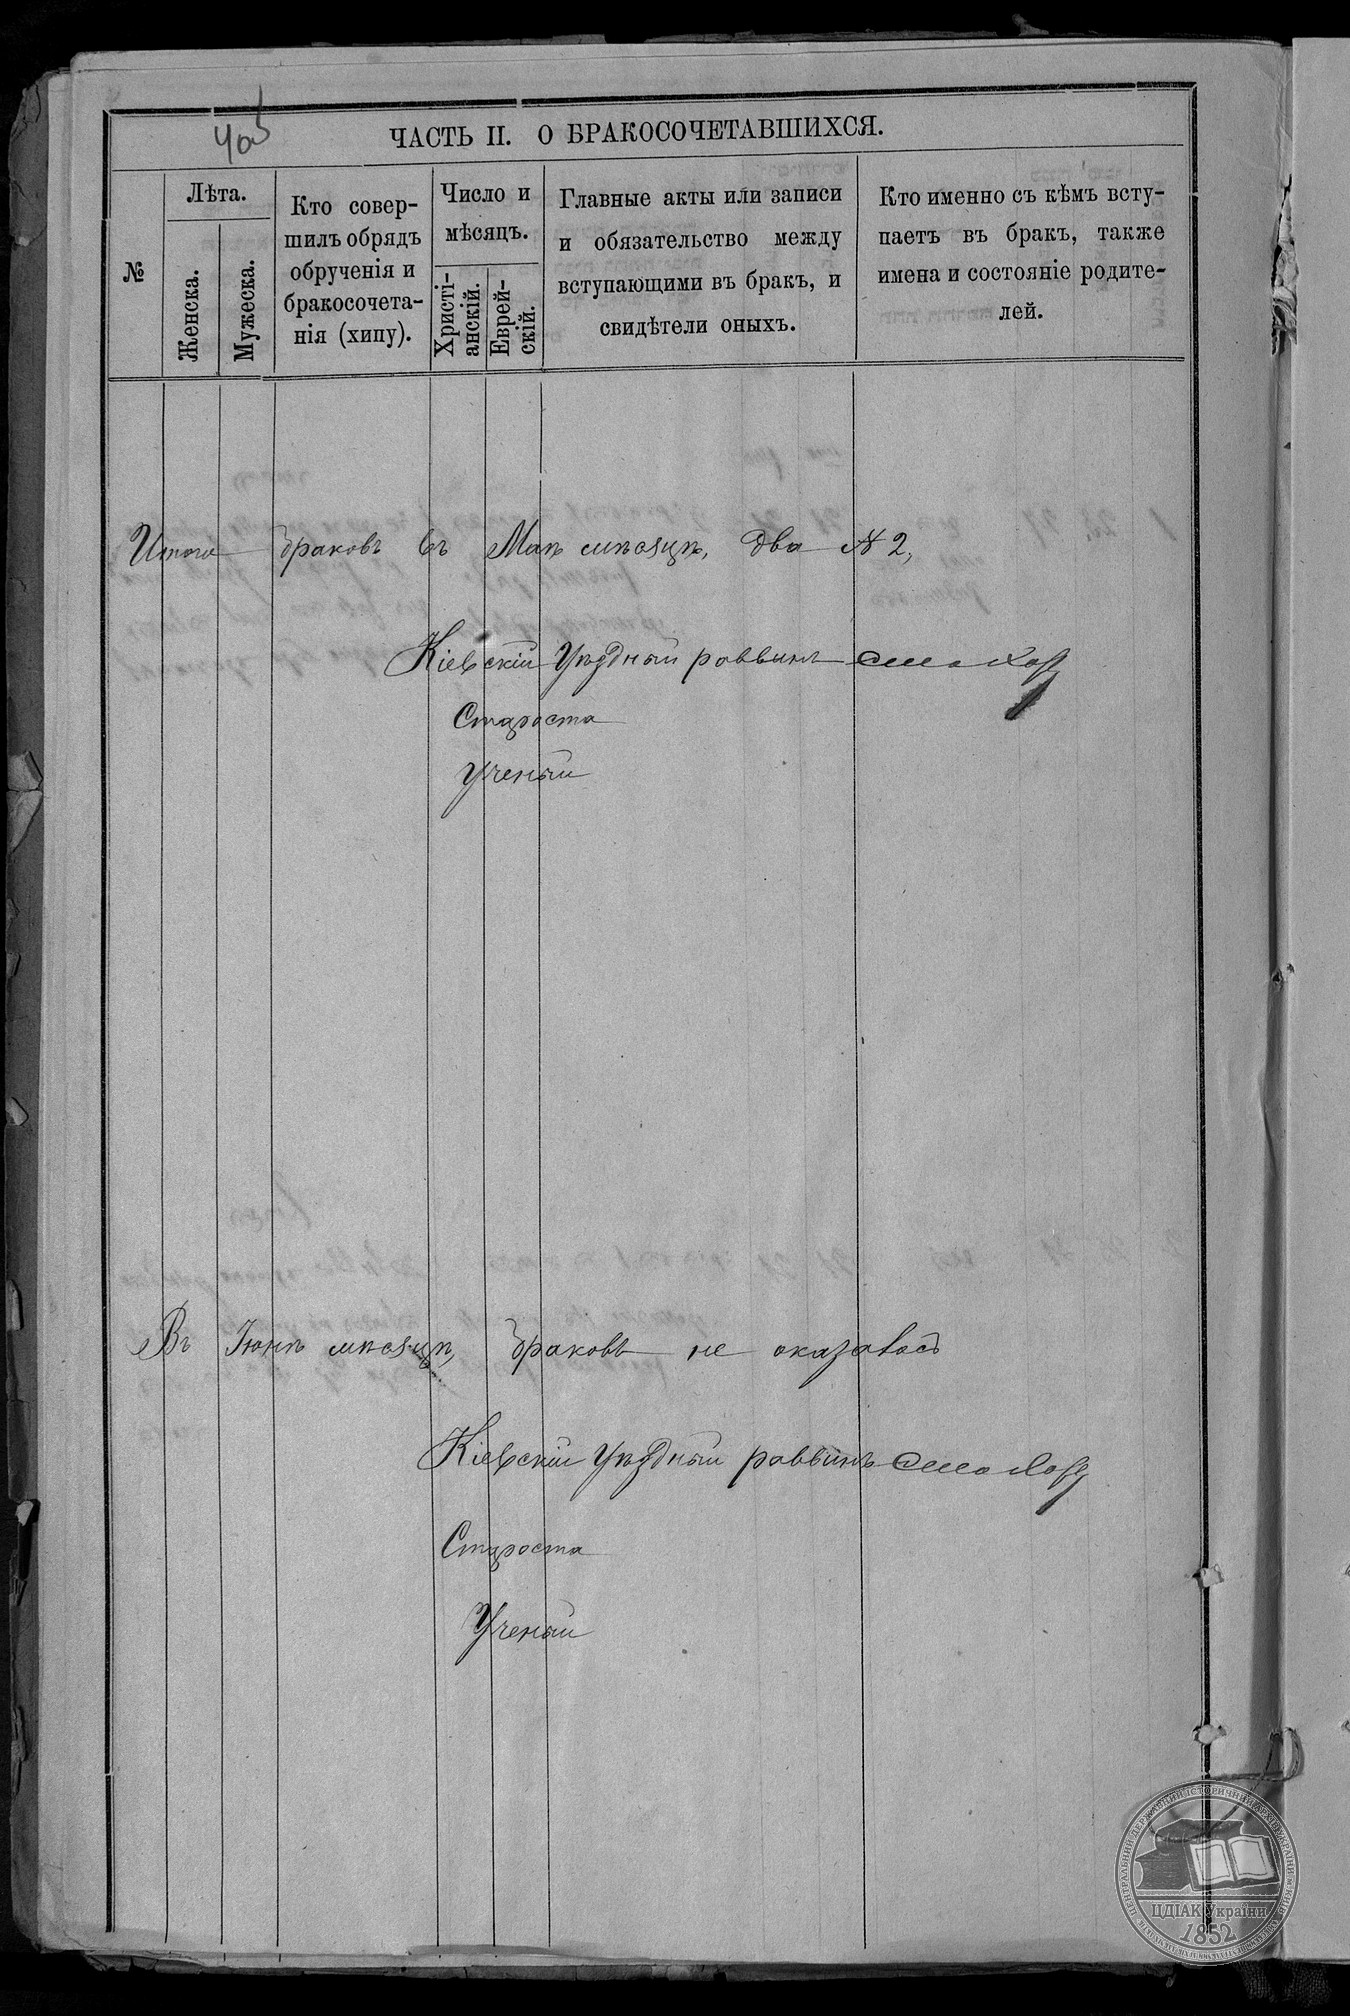 ЧАСТЬ II. О БРАКОСОЧЕТАВШИХСЯ.
№
Лѣта.
Женска.
Мужеска.
Кто совер-
шилъ обрядъ
обрученія и
бракосочета-
нія (хипу).
Число и
мѣсяцъ.
Христі-
анскій.
Еврей-
скій.
Главные акты или записи
и обязательство между
вступающими въ бракъ, и
свидѣтели оныхъ.
Кто именно съ кѣмъ всту-
паетъ въ бракъ, также
имена и состояніе родите-
лей.
Итого браковъ въ Маѣ мѣсяцѣ, два № 2,
Кіевскій Уѣздный раввинъ
Староста
Ученый
Въ Іюнѣ мѣсяцѣ, браковъ не оказалось
Кіевскій Уѣздный раввинъ
Староста
Ученый
ЦДІАК України
1852